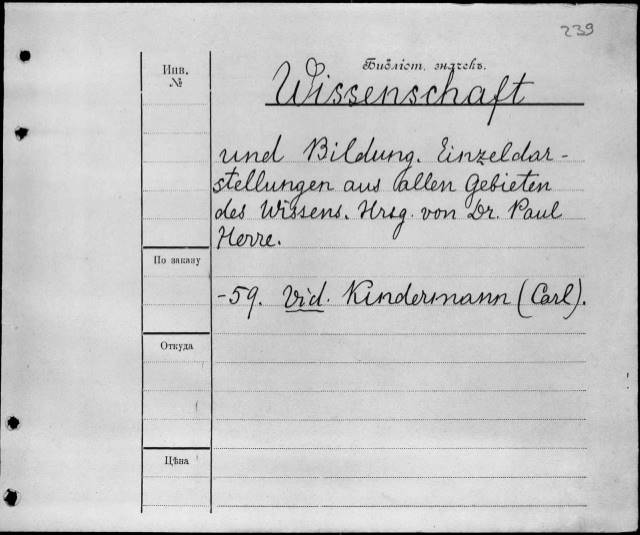 239
Инв.
№
Библіот. значекъ.
Wissenschaft
und Bildung. Einzeldar-
stellungen aus allen Gebieten
des Wissens. Hrsg. von Dr. Paul
Herre.
По заказу
-59. Vid. Kindermann (Carl).
Откуда
Цѣна